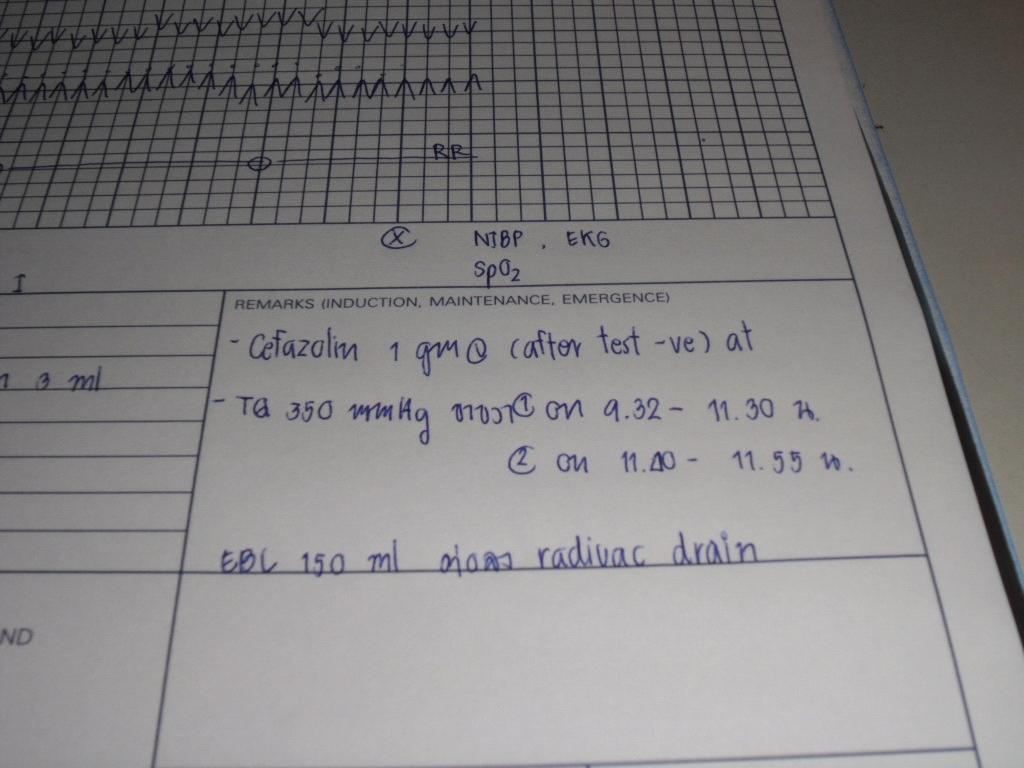 RR
Ⓧ NIBP , EKG
SpO₂
I
REMARKS (INDUCTION, MAINTENANCE, EMERGENCE)
- Cefazolin 1 gm Ⓥ (after test -ve) at
3 ml
- TQ 350 mmHg ① on 9.32 - 11.30 น.
② on 11.40 - 11.55 น.
EBL 150 ml radivac drain
ND